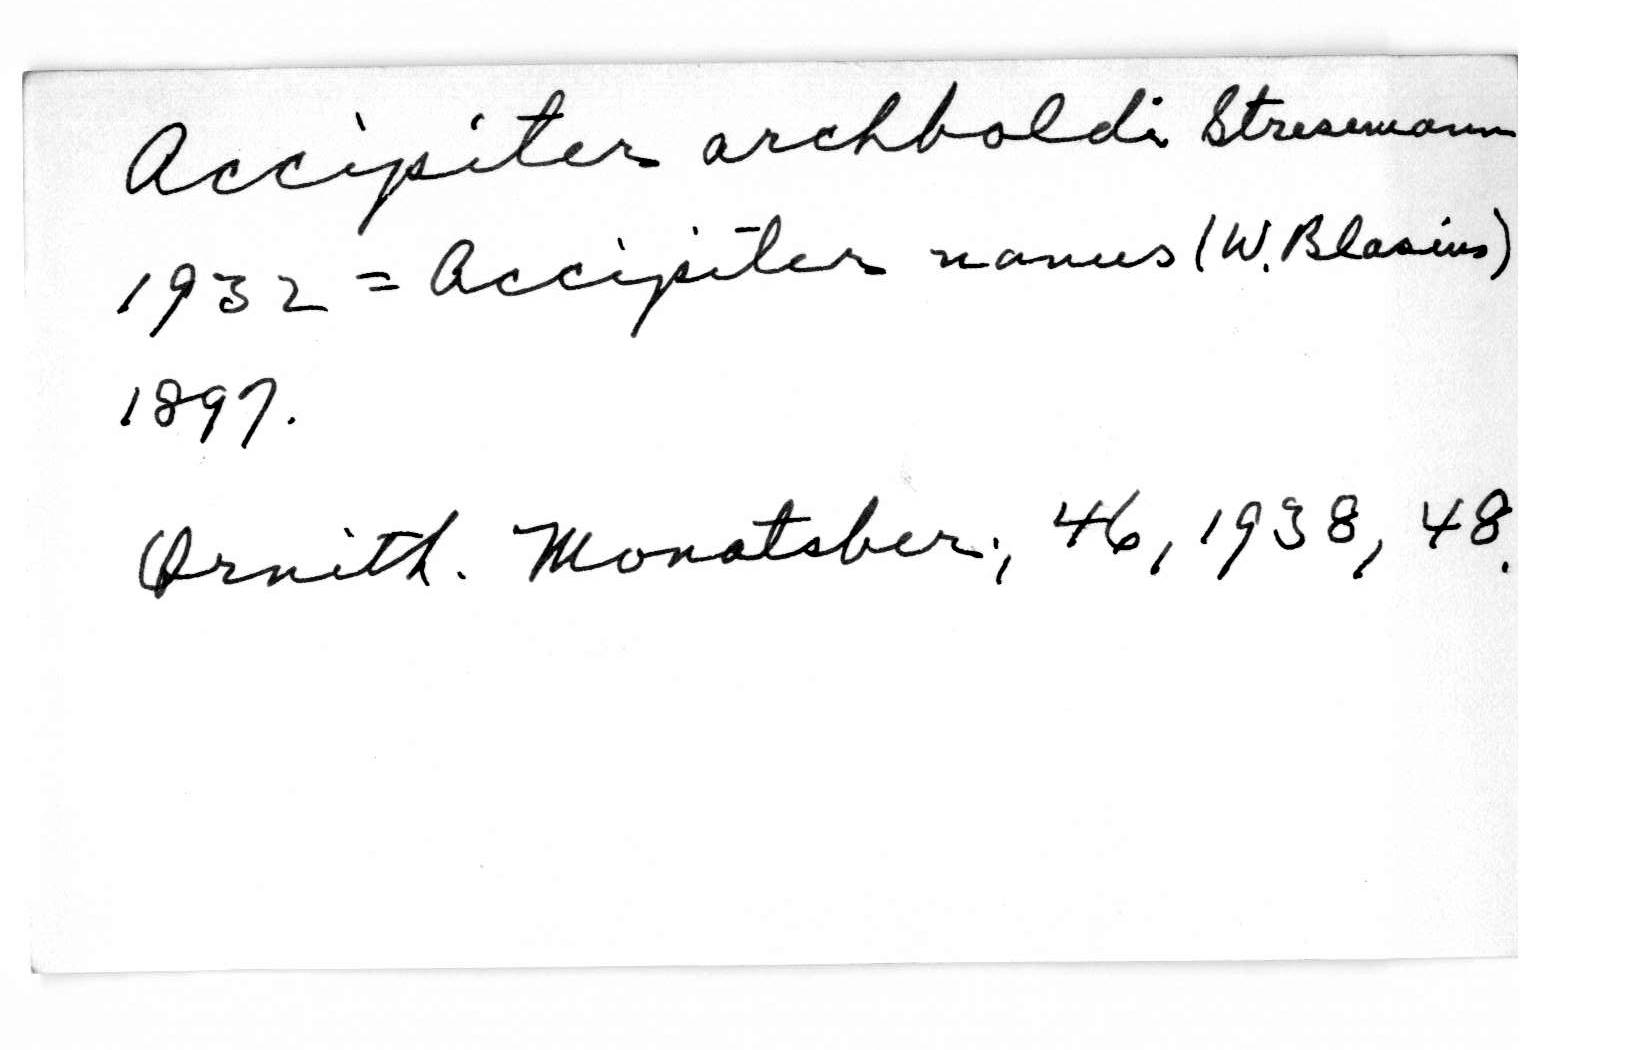 Accipiter archboldi Stresemann
1932 = Accipiter nanus (W. Blasius)
1897.
Ornith. Monatsber., 46, 1938, 48.